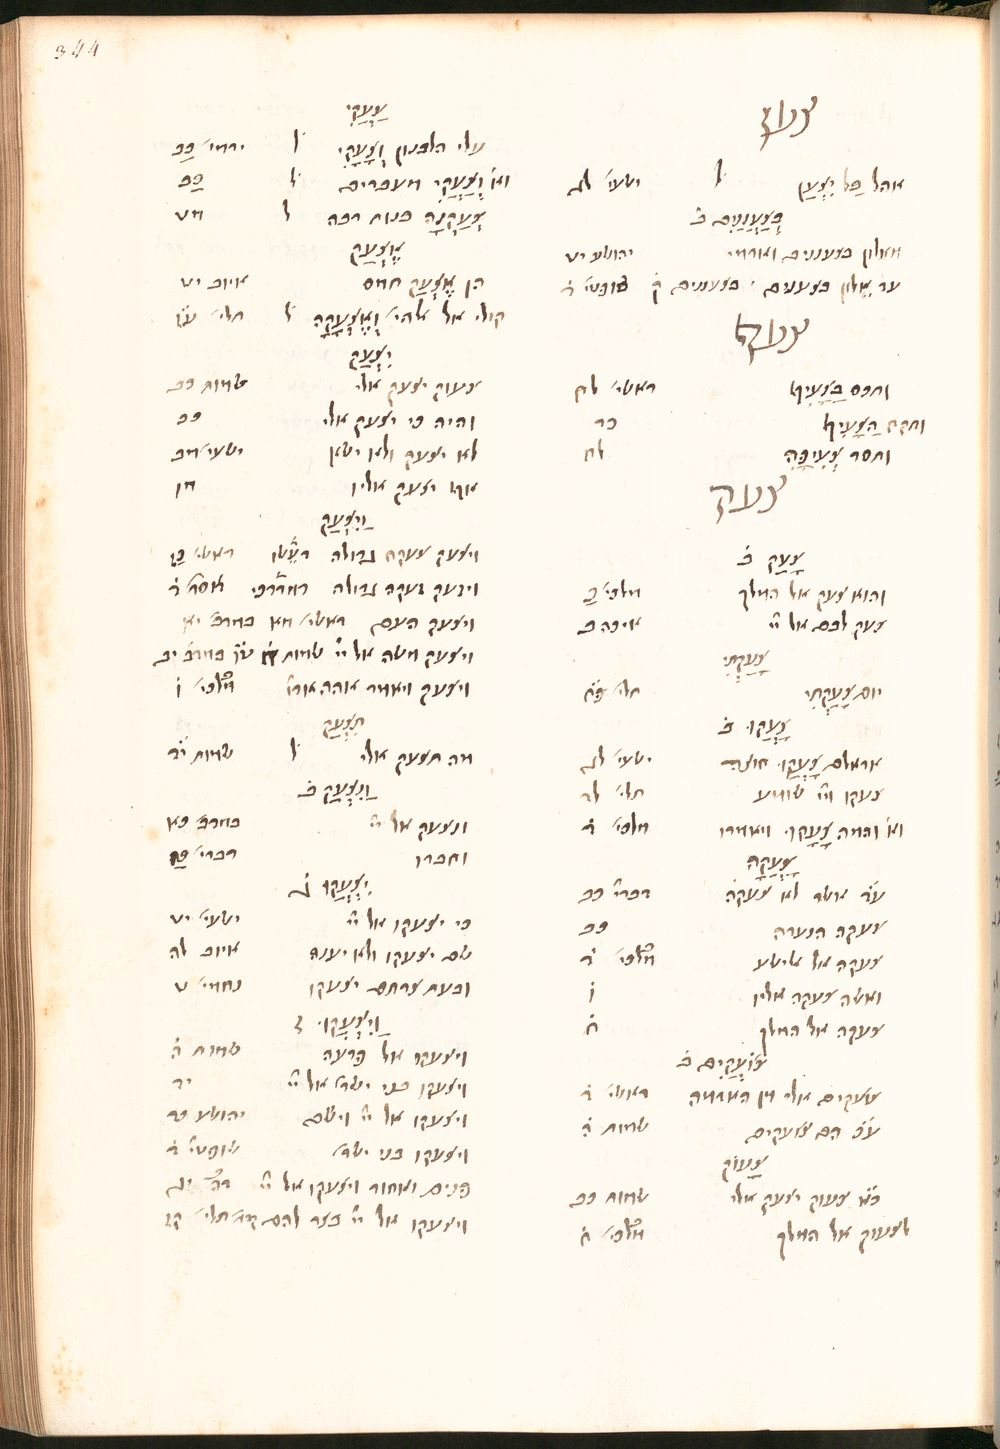 344
צען
אהל בַל יִצְעַן ל ישעי׳ לג
בְּצַעֲנַנִים ב׳
מאלון בצעננים ואדמי יהושע יט
עד אֵלון בצענים ׳ בצעננים ק׳ שופטי׳ ד
צעף
ותכס בַצָעִיף ראשי׳ לח
ותקח הַצָעִיף כד
ותסר צְעִיפָהּ לח
צעק
צָעַק ב׳
והוא צעק אל המלך מלכי׳ ב
צעק לבם אל יי׳ איכה ב
צָעַקְתִּי
יום צָעַקְתִּי תלי׳ פח
צָעֲקוּ ב׳
אראלם צָעֲקוּ חוצה ישעי׳ לג
צעקו ויי׳ שומע תלי׳ לד
וא׳ והמה צָעָקוּ ויאמרו מלכי׳ ד
צָעֲקָה
ע״ד אשר לא צעקה דברי׳ כב
צעקה הנערה כב
צעקה אל אלישע מלכי׳ ד
ואשה צעקה אליו ו
צעקה אל המלך ח
צוֹעֲקִים ב׳
צעקים אלי מן האדמה ראשי׳ ד
ע״כ הם צועקים שמות ה
צָעוֹק
צעוק יצעק אלי שמות כב
לצעוק אל המלך מלכי׳ ח
צַעֲקִי
עלי הלבנון וּצְעָקִי ל ירמי׳ כב
וא׳ וְצַעֲקִי מעברים ל כב
צְעַקְנָה בנות רבה ל מט
אֶצְעַק
הן אֶצְעַק חמס איוב יט
קולי אל אלהי׳ וְאֶצְעָקָה ל תלי׳ עז
יִצְעַק
צעוק יצעק אלי שמות כב
והיה כי יצעק אלי כב
לא יצעק ולא ישא ישעי׳ מב
אף יצעק אליו מו
וַיִּצְעַק
ויצעק צעקה גדולה דעשו ראשי׳ כז
ויזעק זעקה גדולה דמרדכי אסת׳ ד
ויצעק העם ראשי׳ מא במדב׳ יא
ויצעק משה אל יי׳ שמות במדב׳ יב
ויצעק ויאמר אהה אדני מלכי׳ ו
תִצְעַק
מה תצעק אלי ל שמות יד
וַנִצְעַק ב׳
ונצעק אל יי׳ במדב׳ כא
וחברו דברי׳ כו
יִצְעֲקוּ ג׳
כי יצעקו אל יי׳ ישעי׳ יט
שם יצעקו ולא יענה איוב לה
ובעת צרתם יצעקו נחמי׳ ט
וַיִּצְעֲקוּ ז
ויצעקו אל פרעה שמות ה
ויצעקו בני ישרא׳ אל יי׳ יד
ויצעקו אל יי׳ וישם יהושע כד
ויצעקו בני ישרא׳ שופטי׳ ד
פנים ואחור ויצעקו אל יי׳ דה׳ יג
ויצעקו אל יי׳ בצר להם תלי׳ קז